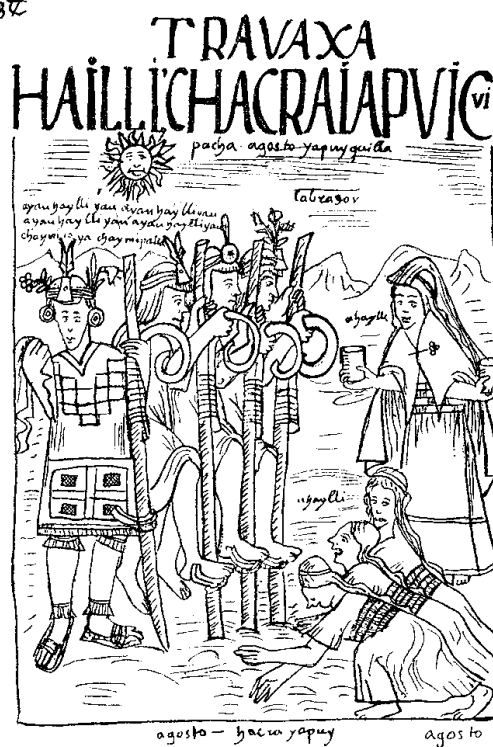 TRAVAXA
HAILLI'CHACRAIAPVIC
vi
pacha agosto yapuy quilla
labrador
ayau haylli yau ayau haylli yau
ayau haylli yau ayau haylli yau
ahaylli
ahaylli
agosto — hacra yapuy
agosto